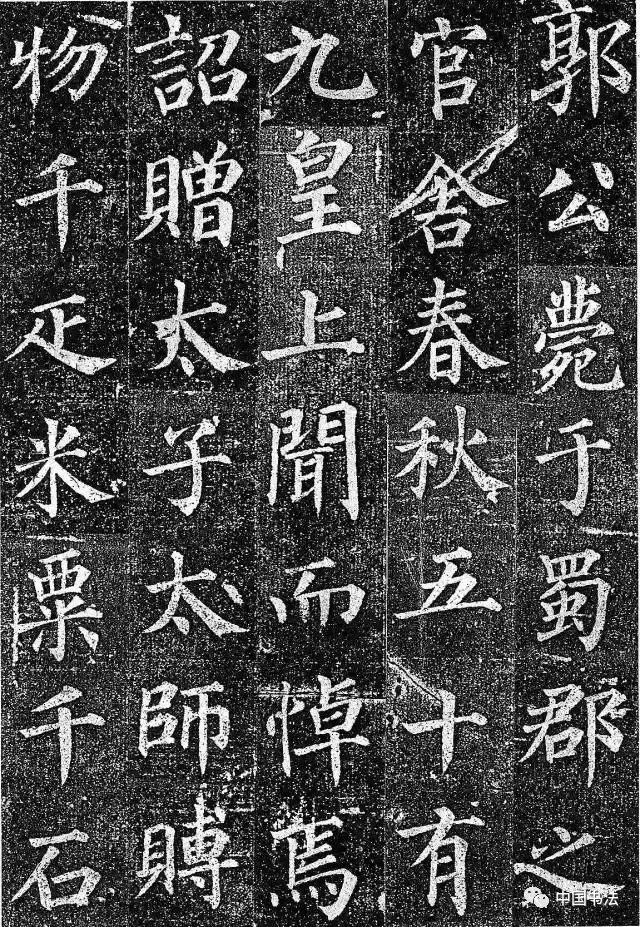 郭公薨于蜀郡之
官舍春秋五十有
九皇上聞而悼焉
詔贈太子太師賻
物千疋米粟千石
中国书法